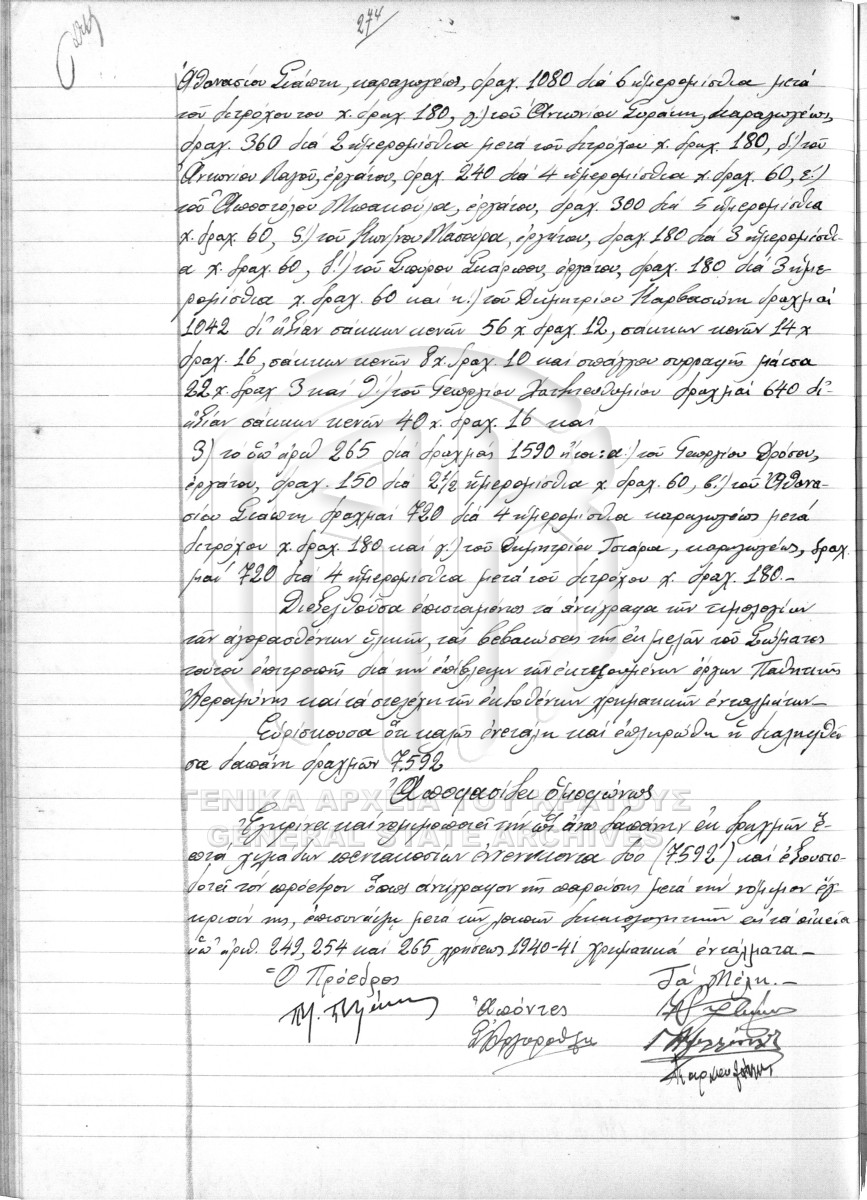 274
Ἀθανασίου Σιάπη, καραγωγέως, δραχ. 1080 διά 6 ἡμερομίσθια μετά
τοῦ διτρόχου του χ. δραχ. 180, γ.) τοῦ Ἀντωνίου καραγωγέως,
δραχ. 360 διά 2 ἡμερομίσθια μετά τοῦ διτρόχου χ. δραχ. 180, δ.) τοῦ
Ἀντωνίου ἐργάτου, δραχ. 240 διά 4 ἡμερομίσθια χ. δραχ. 60, ε.)
τοῦ Ἀποστόλου Μπακούλα, ἐργάτου, δραχ. 300 διά 5 ἡμερομίσθια
χ. δραχ. 60, ς.) τοῦ Κων/νου Μασούρα, ἐργάτου, δραχ. 180 διά 3 ἡμερομίσθι-
α χ. δραχ. 60, ζ.) τοῦ Σπύρου ἐργάτου, δραχ. 180 διά 3 ἡμε-
ρομίσθια χ. δραχ. 60 καί η.) τοῦ Δημητρίου Καρβασώνη δραχμαί
1042 δι' ἀξίαν σάκκων κενῶν 56 χ. δραχ. 12, σάκκων κενῶν 14 χ
δραχ. 16, σάκκων κενῶν 8 χ. δραχ. 10 καί σπάγγου συρραφῆς
22 χ. δραχ 3 καί θ.) τοῦ Γεωργίου Χατζηευθυμίου δραχμαί 640 δι'
ἀξίαν σάκκων κενῶν 40 χ. δραχ. 16 καί
3) τό ὑπ' ἀριθ 265 διά δραχμάς 1590 ἤτοι: α.) τοῦ Γεωργίου Δρόσου,
ἐργάτου, δραχ. 150 διά 2 1/2 ἡμερομίσθια χ. δραχ. 60, β.) τοῦ Ἀθανα-
σίου Σιάπη δραχμαί 720 διά 4 ἡμερομίσθια καραγωγέως μετά
διτρόχου χ. δραχ. 180 καί γ.) τοῦ Δημητρίου Τσιάρα, καραγωγέως, δραχ-
μαί 720 διά 4 ἡμερομίσθια μετά τοῦ διτρόχου χ. δραχ. 180.-
Διεξελθοῦσα ἐπισταμένως τά ἀντίγραφα τῶν τιμολογίων
τῶν ἀγορασθέντων ὑλικῶν, τάς βεβαιώσεις τῆς ἐκ μελῶν τοῦ Σώματος
τούτου ἐπιτροπῆς διά τήν ἐπίβλεψιν τῶν ἐκτελουμένων ἔργων Παθητικῆς
Ἀεραμύνης καί τά στελέχη τῶν ἐκδοθέντων χρηματικῶν ἐνταλμάτων.-
Εὑρίσκουσα ὅτι καλῶς ἐνετάλη καί ἐπληρώθη ἡ διαληφθεῖ-
σα δαπάνη δραχμῶν 7592
Ἀποφασίζει ὁμοφώνως
Ἐγκρίνει καί νομιμοποιεῖ τήν ὡς ἄνω δαπάνην ἐκ δραχμῶν ἑ-
πτά χιλιάδων πεντακοσίων ἐνενήκοντα δύο (7592) καί ἐξουσιο-
δοτεῖ τόν πρόεδρον ὅπως ἀντίγραφον τῆς παρούσης μετά τήν νόμιμον ἔγ-
κρισίν της, ἐπισυνάψῃ μετά τῶν λοιπῶν δικαιολογητικῶν εἰς τά οἰκεῖα
ὑπ' ἀριθ. 249, 254 καί 265 χρήσεως 1940-41 χρηματικά ἐντάλματα.-
Ὁ Πρόεδρος
Τά Μέλη.-
Ἀπόντες
ΓΕΝΙΚΑ ΑΡΧΕΙΑ ΤΟΥ ΚΡΑΤΟΥΣ
GENERAL STATE ARCHIVES